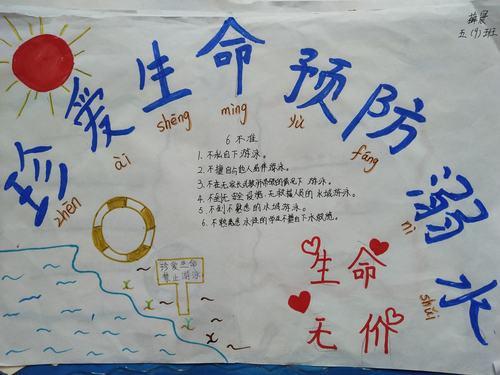 蕻晨
五(9)班
珍爱生命预防溺水
zhēn ài shēng mìng yù fáng nì shuǐ
6不准
1. 不私自下游泳。
2. 不擅自与他人结伴游泳。
3. 不在无家长或教师带领的情况下游泳。
4. 不到无安全设施、无救援人员的水域游泳。
5. 不到不熟悉的水域游泳。
6. 不熟悉水性的学生不擅自下水救施。
珍爱生命
禁止游泳
生命
无价